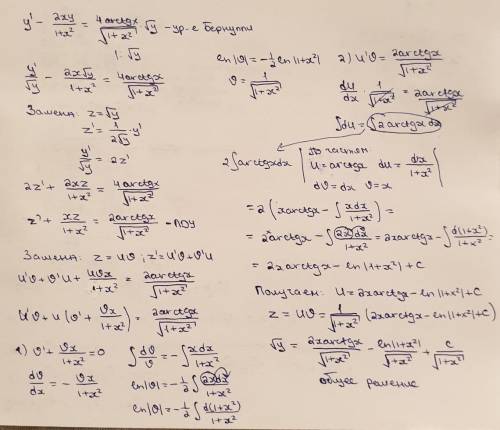 y' - 2xy/(1+x²) = 4arctgx/√(1+x²) · √y - ур-е Бернулли
1 : √y
y'/√y - 2x√y/(1+x²) = 4arctgx/√(1+x²)
Замена: z = √y
z' = 1/(2√y) · y'
y'/√y = 2z'
2z' + 2xz/(1+x²) = 4arctgx/√(1+x²)
z' + xz/(1+x²) = 2arctgx/√(1+x²) - ЛОУ
Замена: z = uϑ ; z' = u'ϑ + ϑ'u
u'ϑ + ϑ'u + uϑx/(1+x²) = 2arctgx/√(1+x²)
u'ϑ + u(ϑ' + ϑx/(1+x²)) = 2arctgx/√(1+x²)
1) ϑ' + ϑx/(1+x²) = 0
dϑ/dx = - ϑx/(1+x²)
∫dϑ/ϑ = -∫xdx/(1+x²)
ln|ϑ| = -1/2 ∫2xdx/(1+x²)
ln|ϑ| = -1/2 ∫d(1+x²)/(1+x²)
ln|ϑ| = -1/2 ln|1+x²|
ϑ = 1/√(1+x²)
2) u'ϑ = 2arctgx/√(1+x²)
du/dx · 1/√(1+x²) = 2arctgx/√(1+x²)
∫du = ∫2arctgxdx
2∫arctgxdx | по частям
u = arctgx du = dx/(1+x²)
dϑ = dx ϑ = x |
= 2(xarctgx - ∫xdx/(1+x²)) =
= 2xarctgx - ∫2xdx/(1+x²) = 2xarctgx - ∫d(1+x²)/(1+x²) =
= 2xarctgx - ln|1+x²| + C
Получаем: u = 2xarctgx - ln|1+x²| + C
z = uϑ = 1/√(1+x²) (2xarctgx - ln|1+x²| + C)
√y = 2xarctgx/√(1+x²) - ln|1+x²|/√(1+x²) + C/√(1+x²)
общее решение